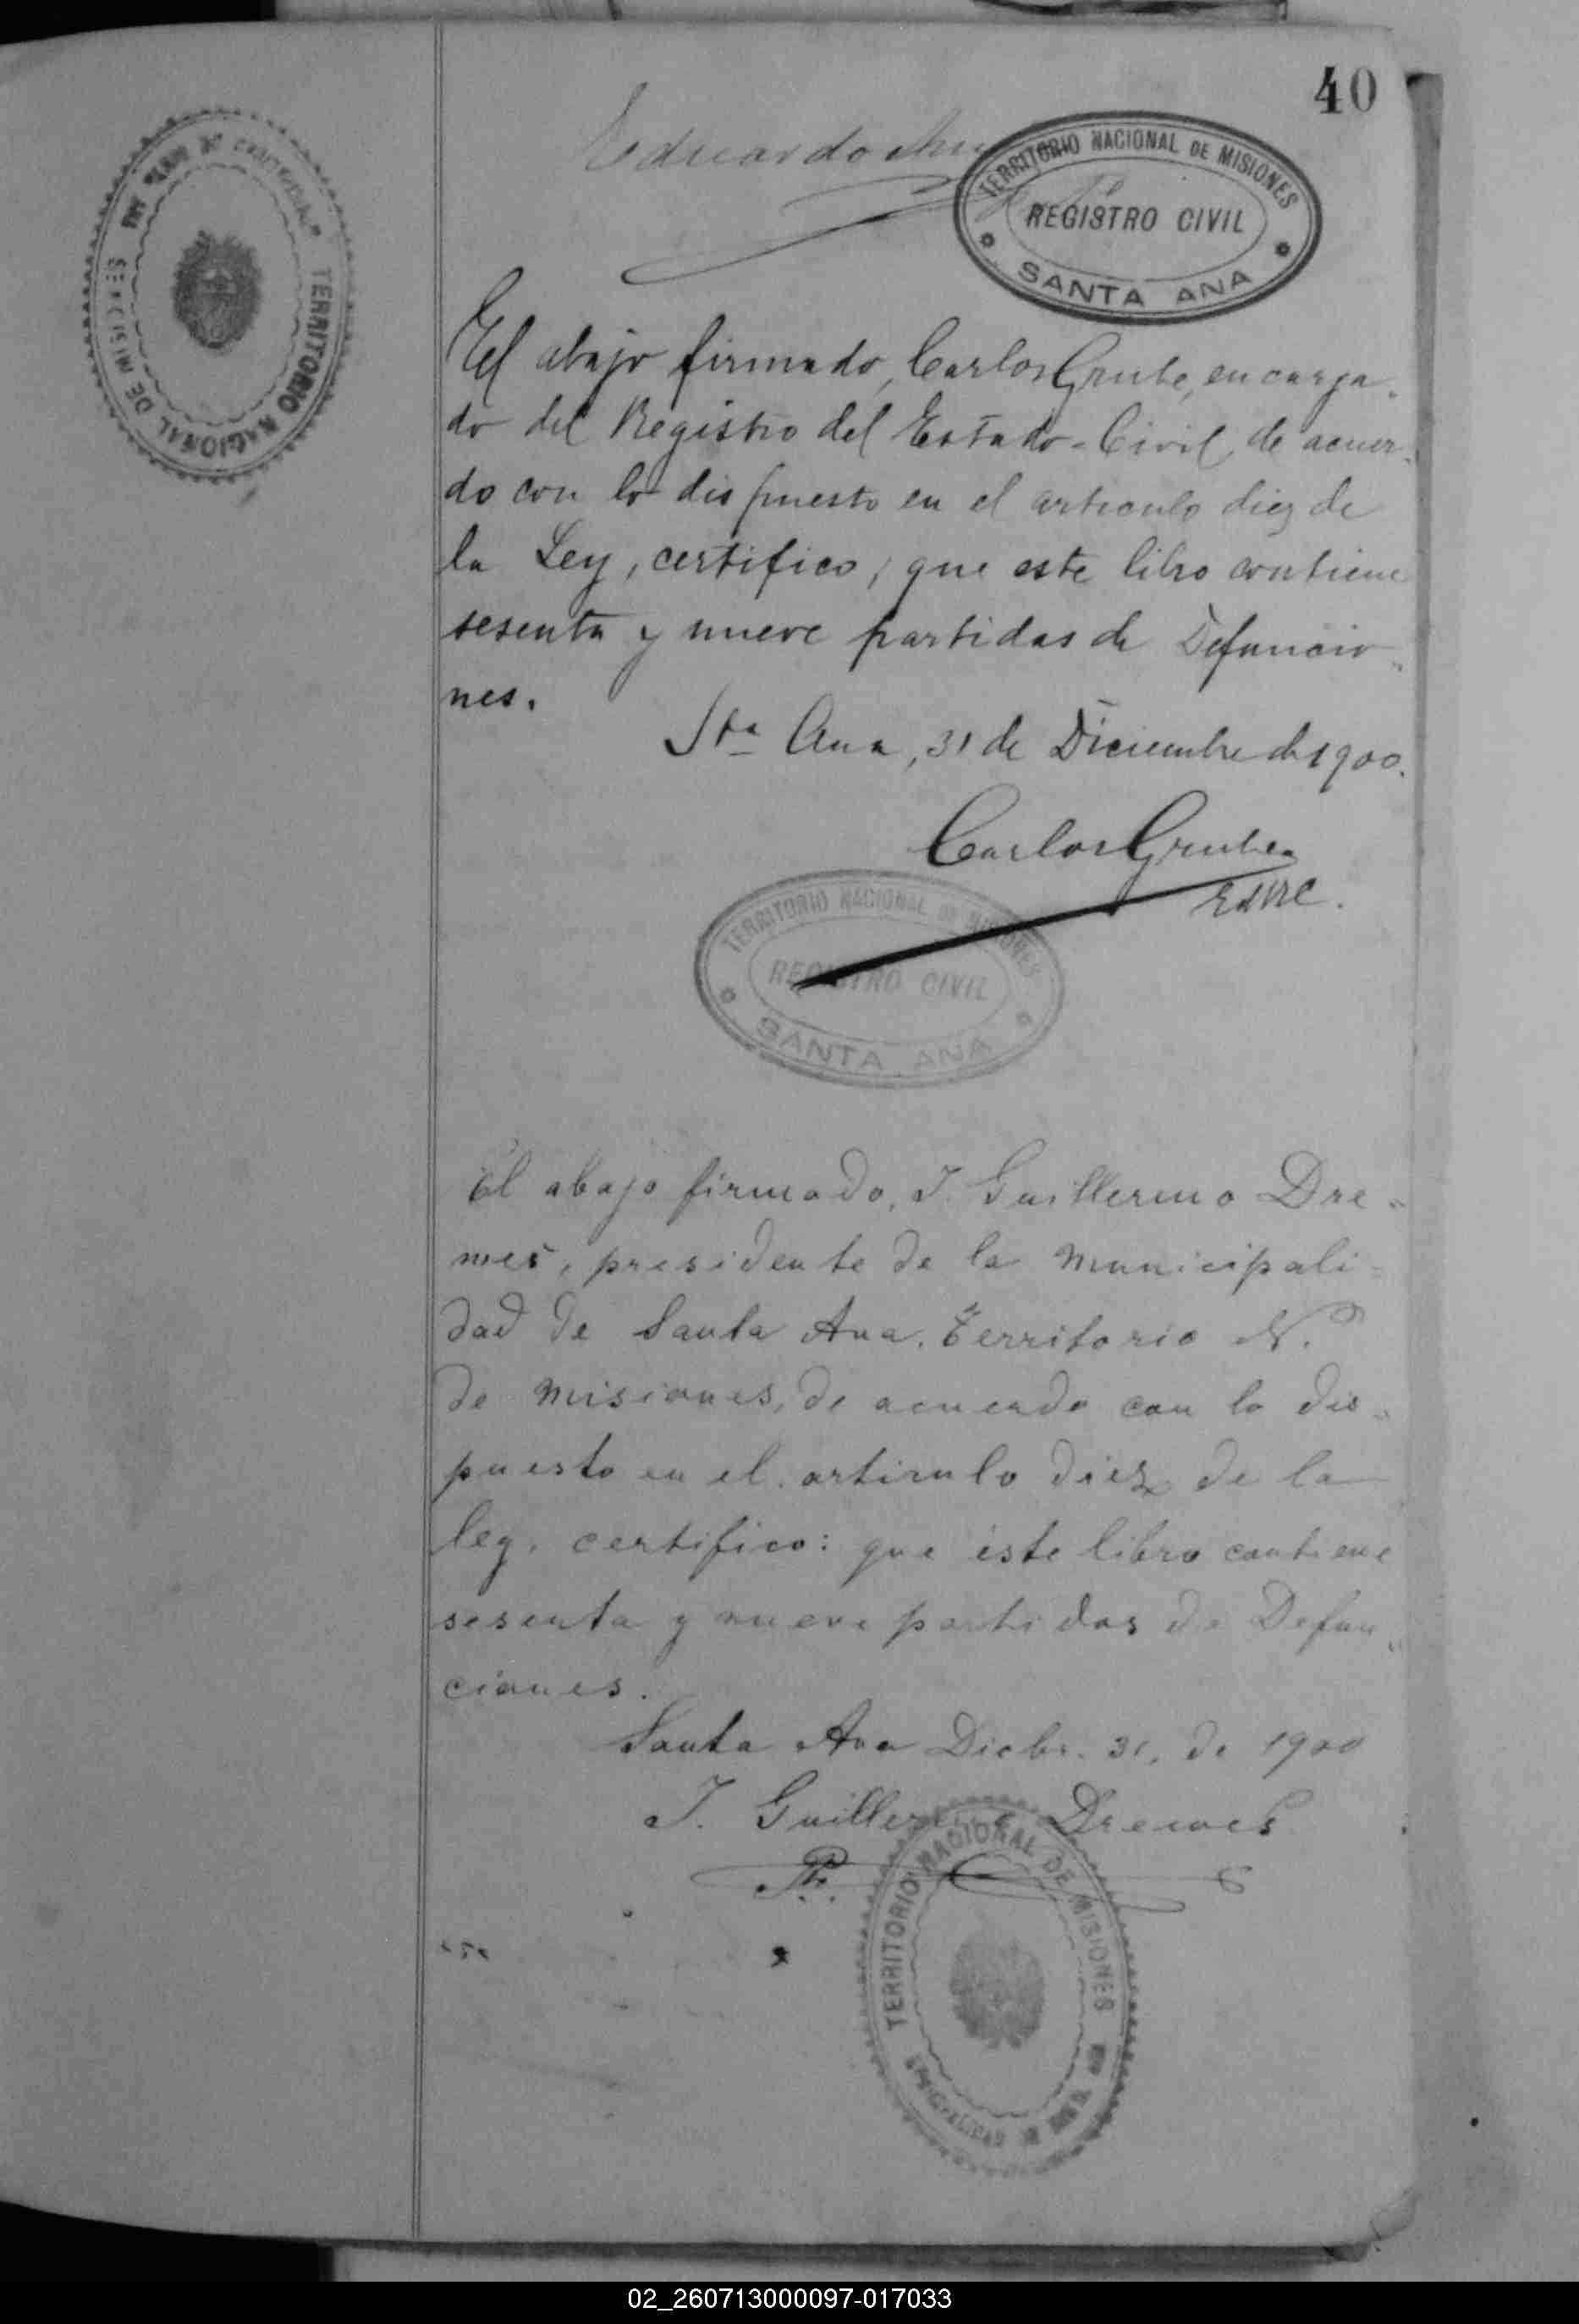 40
Eduardo
TERRITORIO NACIONAL DE MISIONES
REGISTRO CIVIL
SANTA ANA
TERRITORIO NACIONAL DE MISIONES
El abajo firmado, Carlos Grube, encarga-
do del Registro del Estado-Civil, de acuer-
do con lo dispuesto en el articulo diez de
la Ley, certifico, que este libro contiene
sesenta y nueve partidas de Defuncio-
nes.
Sta Ana, 31 de Diciembre de 1900.
Carlos Grube
TERRITORIO NACIONAL DE MISIONES
REGISTRO CIVIL
SANTA ANA
El abajo firmado, J. Guillermo Dre-
wes, presidente de la Municipali-
dad de Santa Ana. Territorio N.
de Misiones, de acuerdo con lo dis-
puesto en el articulo diez de la
ley, certifico: que éste libro contiene
sesenta y nueve partidas de Defun-
ciones.
Santa Ana Dicbr. 31. de 1900
J. Guillermo Drewes
TERRITORIO NACIONAL DE MISIONES
02_260713000097-017033